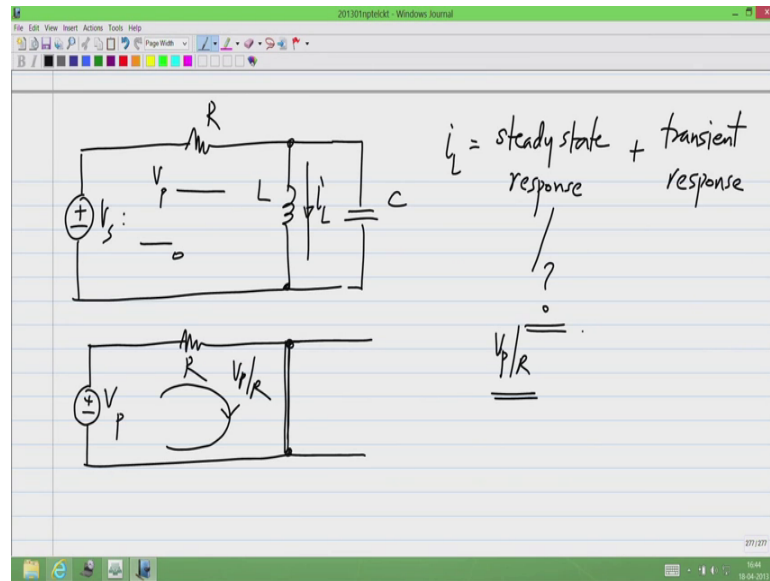 201301nptelckt - Windows Journal
File Edit View Insert Actions Tools Help
Page Width
B I
R
V_p
V_s :
0
L
i_L
C
i_L = steady state response + transient response
?
V_p/R
R
V_p/R
V_p
277/277
16:44
18-04-2013